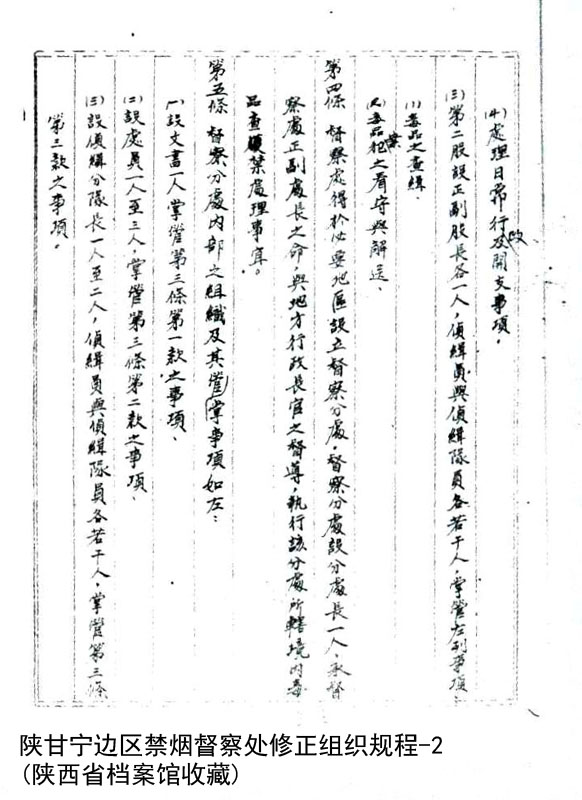 (4)處理日常行政及開支事項.
(三)第二股設正副股長各一人,偵緝員與偵緝隊員各若干人,掌管左列事項:
(1)毒品之查緝、
(2)毒品案犯之看守與解送、
第四條 督察處得於必要地區設立督察分處,督察分處設分處長一人,承督
察處正副處長之命,與地方行政長官之督導,執行該分處所轄境内毒
品查禁處理事宜。
第五條 督察分處内部之組織及其掌管事項如左:
(一)設文書一人掌管第三條第一款之事項、
(二)設處員一人至三人,掌管第三條第二款之事項、
(三)設偵緝分隊長一人至二人,偵緝員與偵緝隊員各若干人,掌管第三條
第三款之事項。
陕甘宁边区禁烟督察处修正组织规程-2
(陕西省档案馆收藏)